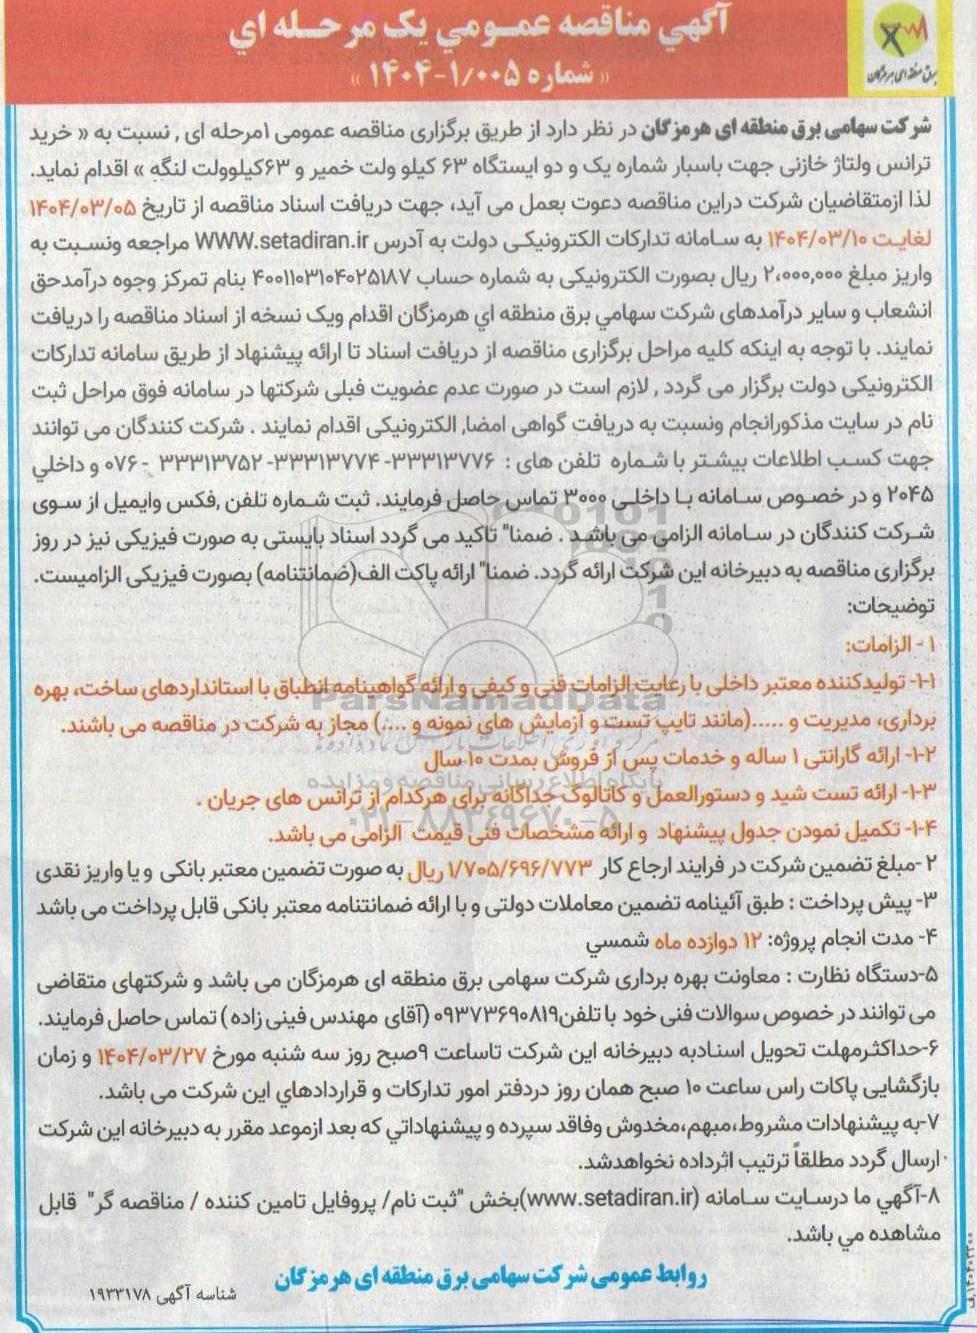 آگهي مناقصه عمـومي يک مرحـله اي
« شماره ۱/۰۰۵-۱۴۰۴ »
برق منطقه ای هرمزگان
شرکت سهامی برق منطقه ای هرمزگان در نظر دارد از طریق برگزاری مناقصه عمومی ۱مرحله ای , نسبت به « خرید
ترانس ولتاژ خازنی جهت باسبار شماره یک و دو ایستگاه ۶۳ کیلو ولت خمیر و ۶۳کیلوولت لنگه » اقدام نماید.
لذا ازمتقاضیان شرکت دراین مناقصه دعوت بعمل می آید، جهت دریافت اسناد مناقصه از تاریخ ۱۴۰۴/۰۳/۰۵
لغایت ۱۴۰۴/۰۳/۱۰ به سامانه تدارکات الکترونیکی دولت به آدرس WWW.setadiran.ir مراجعه ونسبت به
واریز مبلغ ۲،۰۰۰,۰۰۰ ریال بصورت الکترونیکی به شماره حساب ۴۰۰۱۱۰۳۱۰۴۰۲۵۱۸۷ بنام تمرکز وجوه درآمدحق
انشعاب و سایر درآمدهای شرکت سهامي برق منطقه اي هرمزگان اقدام ویک نسخه از اسناد مناقصه را دریافت
نمایند. با توجه به اینکه کلیه مراحل برگزاری مناقصه از دریافت اسناد تا ارائه پیشنهاد از طریق سامانه تدارکات
الکترونیکی دولت برگزار می گردد , لازم است در صورت عدم عضویت قبلی شرکتها در سامانه فوق مراحل ثبت
نام در سایت مذکورانجام ونسبت به دریافت گواهی امضاء الکترونیکی اقدام نمایند . شرکت کنندگان می توانند
جهت کسب اطلاعات بیشتر با شماره تلفن های : ۳۳۳۱۳۷۷۶- ۳۳۳۱۳۷۷۴- ۳۳۳۱۳۷۵۲ - ۰۷۶ و داخلي
۲۰۴۵ و در خصوص سامانه با داخلی ۳۰۰۰ تماس حاصل فرمایند. ثبت شماره تلفن ,فکس وایمیل از سوی
شرکت کنندگان در سامانه الزامی می باشد . ضمنا" تاکید می گردد اسناد بایستی به صورت فیزیکی نیز در روز
برگزاری مناقصه به دبیرخانه این شرکت ارائه گردد. ضمنا" ارائه پاکت الف(ضمانتنامه) بصورت فیزیکی الزامیست.
توضیحات:
۱ - الزامات:
۱-۱- تولیدکننده معتبر داخلی با رعایت الزامات فنی و کیفی و ارائه گواهینامه انطباق با استانداردهای ساخت، بهره
برداری، مدیریت و .....(مانند تایپ تست و آزمایش های نمونه و ....) مجاز به شرکت در مناقصه می باشند.
۱-۲- ارائه گارانتی ۱ ساله و خدمات پس از فروش بمدت ۱۰ سال
۱-۳- ارائه تست شید و دستورالعمل و کاتالوگ جداگانه برای هرکدام از ترانس های جریان .
۱-۴- تکمیل نمودن جدول پیشنهاد و ارائه مشخصات فنی قیمت الزامی می باشد.
۲ -مبلغ تضمین شرکت در فرایند ارجاع کار ۱/۷۰۵/۶۹۶/۷۷۳ ریال به صورت تضمین معتبر بانکی و یا واریز نقدی
۳- پیش پرداخت : طبق آئینامه تضمین معاملات دولتی و با ارائه ضمانتنامه معتبر بانکی قابل پرداخت می باشد
۴- مدت انجام پروژه: ۱۲ دوازده ماه شمسي
۵-دستگاه نظارت : معاونت بهره برداری شرکت سهامی برق منطقه ای هرمزگان می باشد و شرکتهای متقاضی
می توانند در خصوص سوالات فنی خود با تلفن۰۹۳۷۳۶۹۰۸۱۹ (آقای مهندس فینی زاده ) تماس حاصل فرمایند.
۶-حداکثرمهلت تحویل اسنادبه دبیرخانه این شرکت تاساعت ۹صبح روز سه شنبه مورخ ۱۴۰۴/۰۳/۲۷ و زمان
بازگشایی پاکات راس ساعت ۱۰ صبح همان روز دردفتر امور تدارکات و قراردادهاي این شرکت می باشد.
۷-به پیشنهادات مشروط،مبهم،مخدوش وفاقد سپرده و پیشنهاداتي که بعد ازموعد مقرر به دبیرخانه این شرکت
ارسال گردد مطلقاً ترتیب اثرداده نخواهدشد.
۸-آگهي ما درسایت سامانه (www.setadiran.ir)بخش "ثبت نام/ پروفایل تامین کننده / مناقصه گر" قابل
مشاهده مي باشد.
روابط عمومی شرکت سهامی برق منطقه ای هرمزگان
شناسه آگهی ۱۹۳۳۱۷۸
ParsNamadData
پایگاه اطلاع رسانی مناقصه و مزایده
۰۲۱-۸۸۳۴۹۶۷۰-۵